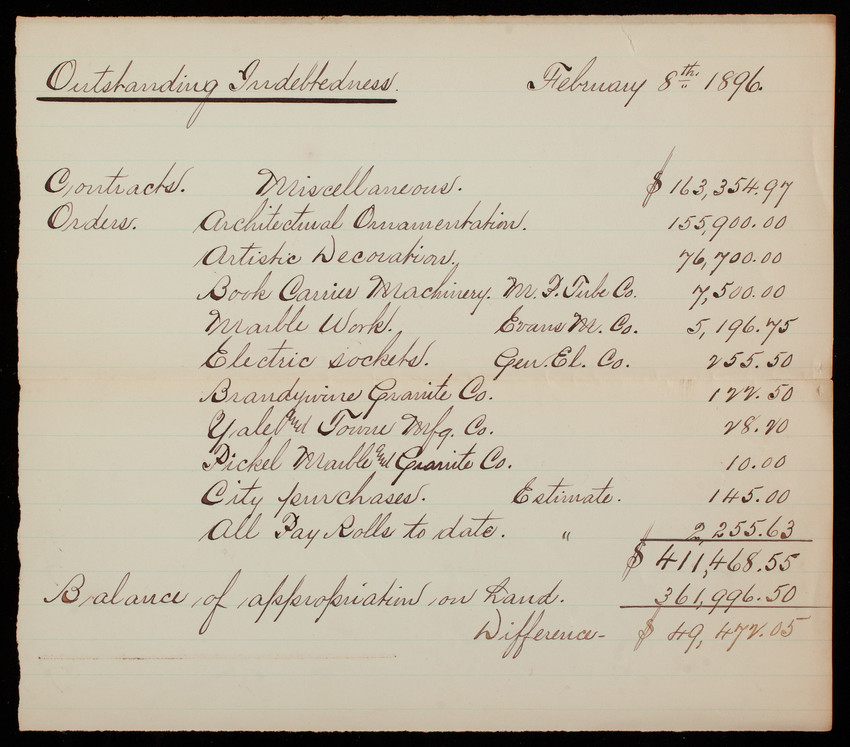 Outstanding Indebtedness. February 8th. 1896.
Contracts. Miscellaneous. $ 163,354.97
Orders. Architectural Ornamentation. 155,900.00
Artistic Decoration. 76,700.00
Book Carrier Machinery. M. F. Tube Co. 7,500.00
Marble Work. Evans M. Co. 5,196.75
Electric sockets. Gen. El. Co. 255.50
Brandywine Granite Co. 122.50
Yale and Towne Mfg. Co. 28.20
Pickel Marble and Granite Co. 10.00
City purchases. Estimate. 145.00
All Pay Rolls to date. " 2,255.63
$ 411,468.55
Balance of appropriation on hand. 361,996.50
Difference- $ 49,472.05